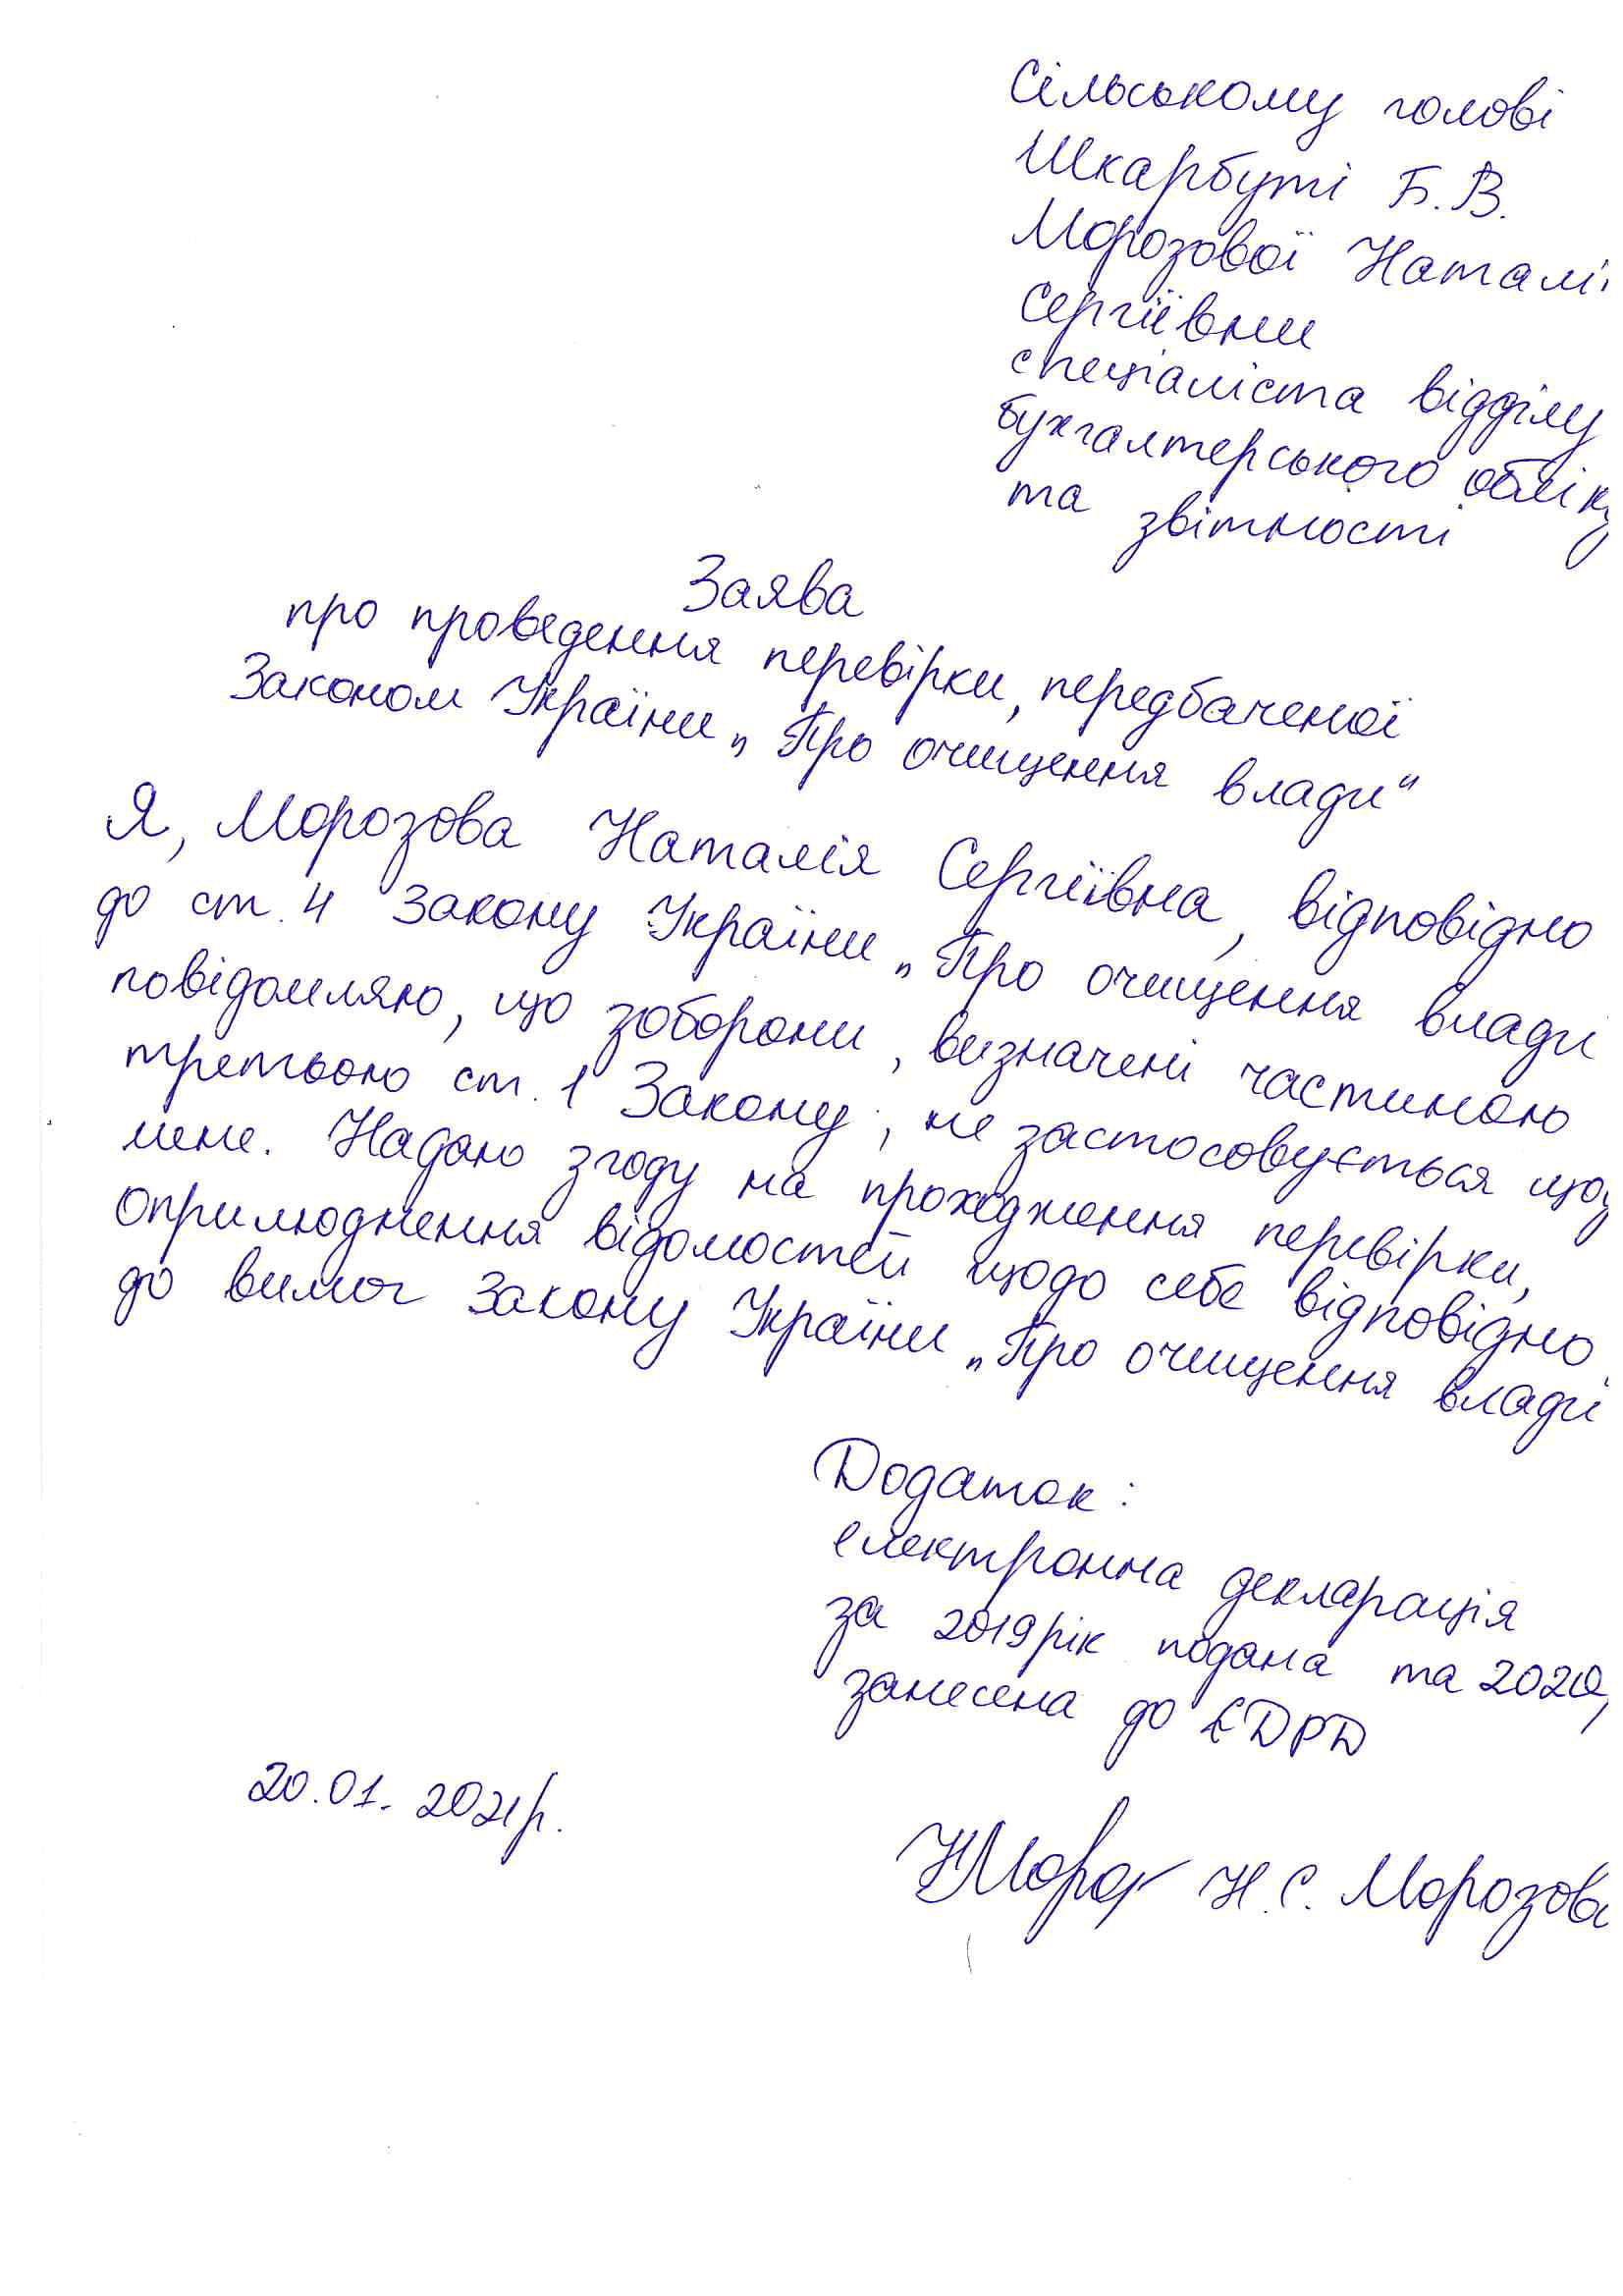 Сільському голові
Шкарбуті Б.В.
Морозової Наталі
Сергіївни
спеціаліста відділу
бухгалтерського обліку
та звітності
Заява
про проведення перевірки, передбаченої
Законом України „Про очищення влади“
Я, Морозова Наталія Сергіївна, відповідно
до ст. 4 Закону України „Про очищення влади
повідомляю, що заборони, визначені частиною
третьою ст. 1 Закону, не застосовується щод
мене. Надаю згоду на проходження перевірки,
оприлюднення відомостей щодо себе відповідно
до вимог Закону України „Про очищення влади
Додаток:
електронна декларація
за 2019 рік подана та 2020,
занесена до ЄДРД
20.01.2021р.
Н.С. Морозова